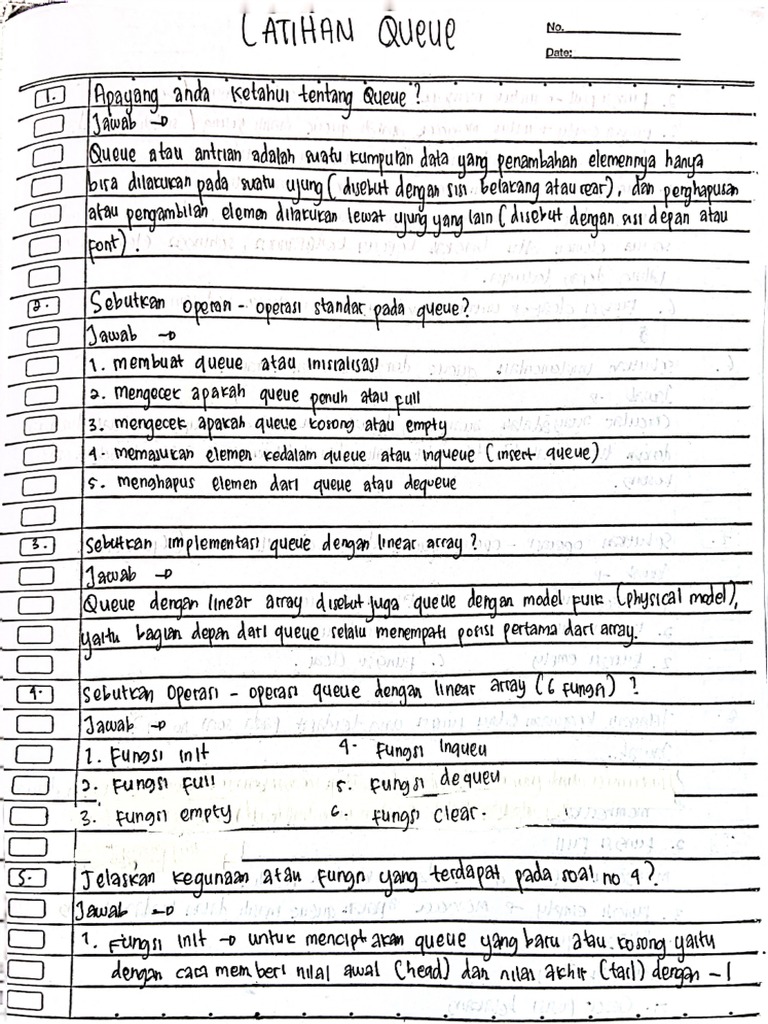 LATIHAN Queue
No.
Date:
1. Apayang anda ketahui tentang Queue?
Jawab →
Queue atau antrian adalah suatu kumpulan data yang penambahan elemennya hanya
bisa dilakukan pada suatu ujung (disebut dengan sisi belakang atau rear), dan penghapusan
atau pengambilan elemen dilakukan lewat ujung yang lain (disebut dengan sisi depan atau
font).
2. Sebutkan operasi - operasi standar pada queue?
Jawab →
1. membuat queue atau inisialisasi
2. mengecek apakah queue penuh atau full
3. mengecek apakah queue kosong atau empty
4. memasukan elemen kedalam queue atau inqueue (insert queue)
5. menghapus elemen dari queue atau dequeue
3. Sebutkan implementasi queue dengan linear array?
Jawab →
Queue dengan linear array disebut juga queue dengan model fisik (physical model),
yaitu bagian depan dari queue selalu menempati posisi pertama dari array.
4. Sebutkan Operasi - operasi queue dengan linear array (6 fungsi) ?
Jawab →
1. Fungsi init 4. Fungsi Inqueu
2. Fungsi full 5. Fungsi dequeu
3. Fungsi empty 6. Fungsi clear.
5. Jelaskan kegunaan atau fungsi yang terdapat pada soal no 4?
Jawab →
1. Fungsi init → untuk menciptakan queue yang baru atau kosong yaitu
dengan cara memberi nilai awal (head) dan nilai akhir (tail) dengan -1